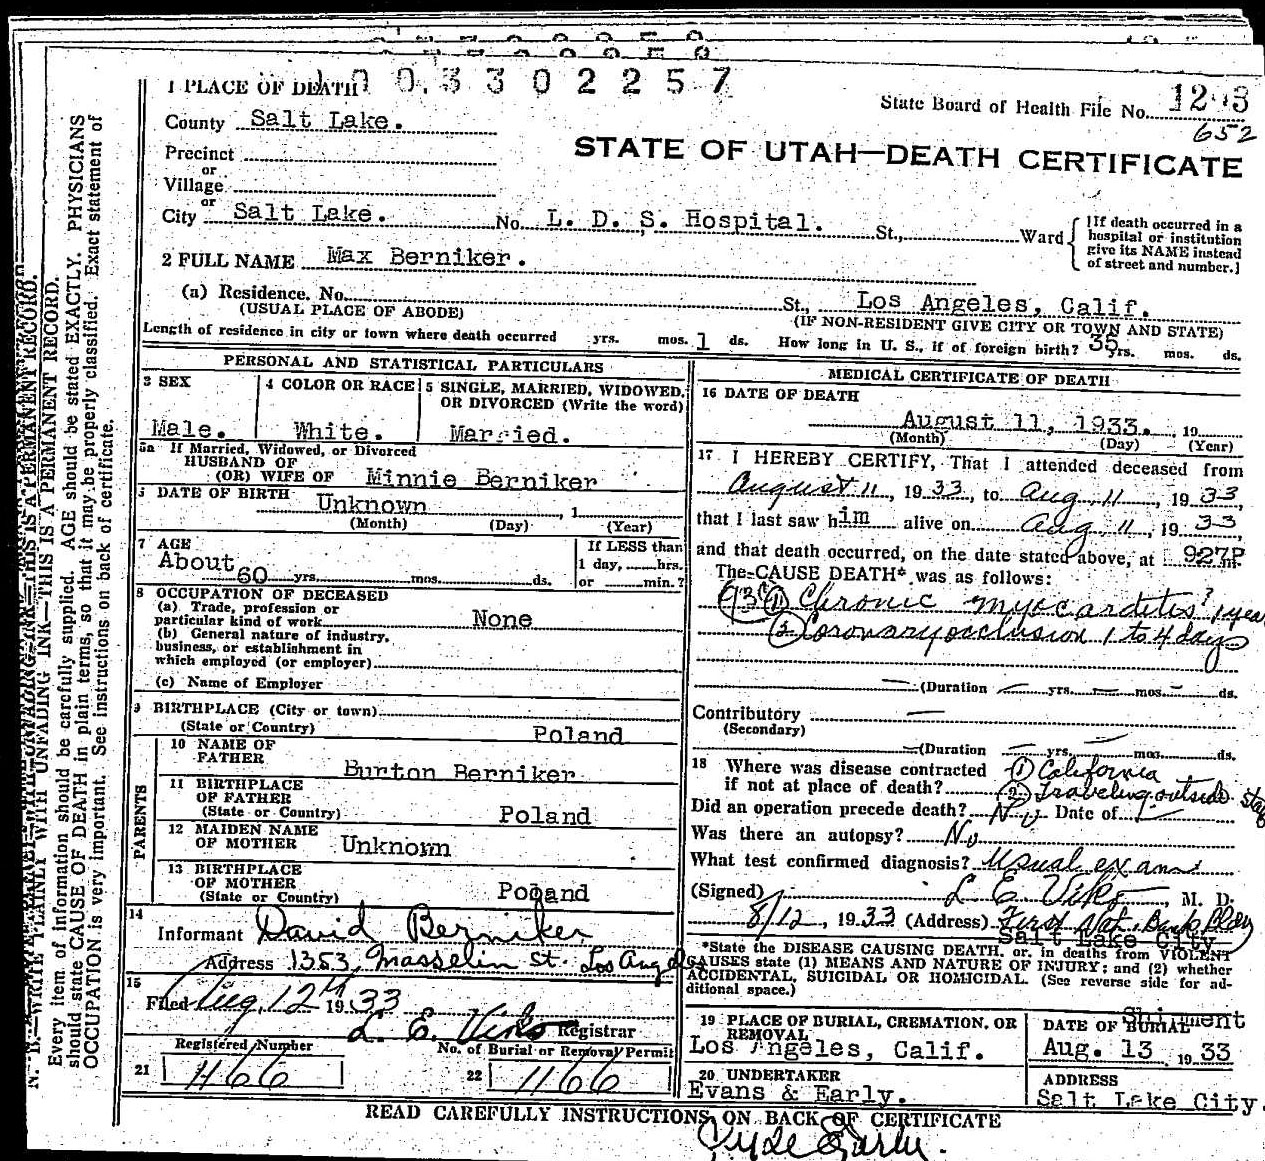 1 PLACE OF DEATH
0.3302257
State Board of Health File No.
652
County Salt Lake.
STATE OF UTAH—DEATH CERTIFICATE
Precinct
or
Village
or
City Salt Lake. No. L. D. S. Hospital. St., Ward
[If death occurred in a
hospital or institution
give its NAME instead
of street and number.]
2 FULL NAME Max Berniker.
(a) Residence. No. St., Los Angeles, Calif.
(USUAL PLACE OF ABODE) (IF NON-RESIDENT GIVE CITY OR TOWN AND STATE)
Length of residence in city or town where death occurred yrs. mos. 1 ds. How long in U. S., if of foreign birth? 35 yrs. mos. ds.
PERSONAL AND STATISTICAL PARTICULARS
3 SEX
Male.
4 COLOR OR RACE
White.
5 SINGLE, MARRIED, WIDOWED,
OR DIVORCED (Write the word)
Married.
5a If Married, Widowed, or Divorced
HUSBAND OF
(OR) WIFE OF Minnie Berniker
DATE OF BIRTH Unknown , 1
(Month) (Day) (Year)
7 AGE
About
60 yrs. mos. ds.
If LESS than
1 day, hrs.
or min.?
8 OCCUPATION OF DECEASED
(a) Trade, profession or
particular kind of work None
(b) General nature of industry,
business, or establishment in
which employed (or employer)
(c) Name of Employer
9 BIRTHPLACE (City or town)
(State or Country) Poland
PARENTS
10 NAME OF
FATHER Burton Berniker
11 BIRTHPLACE
OF FATHER
(State or Country) Poland
12 MAIDEN NAME
OF MOTHER Unknown
13 BIRTHPLACE
OF MOTHER
(State or Country) Poland
14
Informant David Berniker
Address 1353 Masselin St. Los Angeles
15
Filed Aug. 12th 1933
L. E. Viko Registrar
Registered Number
21 1166
No. of Burial or Removal Permit
22 1166
MEDICAL CERTIFICATE OF DEATH
16 DATE OF DEATH
August 11, 1933. , 19
(Month) (Day) (Year)
17 I HEREBY CERTIFY, That I attended deceased from
August 11, 1933, to Aug. 11, 1933,
that I last saw him alive on Aug 11, 1933
and that death occurred, on the date stated above, at 927P m.
The CAUSE DEATH* was as follows:
(1) Chronic myocarditis? 1 year
(2) Coronary occlusion 1 to 4 days
(Duration yrs. mos. ds.
Contributory
(Secondary)
(Duration yrs. mos. ds.
18 Where was disease contracted (1) California
if not at place of death? (2) Traveling outside state
Did an operation precede death? No Date of
Was there an autopsy? No
What test confirmed diagnosis? Usual exam
(Signed) L. E. Viko, M. D.
8/12, 1933 (Address) First Nat. Bank Bldg
Salt Lake City
*State the DISEASE CAUSING DEATH, or, in deaths from VIOLENT
CAUSES state (1) MEANS AND NATURE OF INJURY; and (2) whether
ACCIDENTAL, SUICIDAL OR HOMICIDAL. (See reverse side for ad-
ditional space.)
19 PLACE OF BURIAL, CREMATION, OR
REMOVAL
Los Angeles, Calif.
Shipment
DATE OF BURIAL
Aug. 13 1933
20 UNDERTAKER
Evans & Early.
ADDRESS
Salt Lake City.
READ CAREFULLY INSTRUCTIONS ON BACK OF CERTIFICATE
Clyde Early.
N. B.—WRITE PLAINLY WITH UNFADING INK—THIS IS A PERMANENT RECORD.
Every item of information should be carefully supplied. AGE should be stated EXACTLY. PHYSICIANS
should state CAUSE OF DEATH in plain terms, so that it may be properly classified. Exact statement of
OCCUPATION is very important. See instructions on back of certificate.